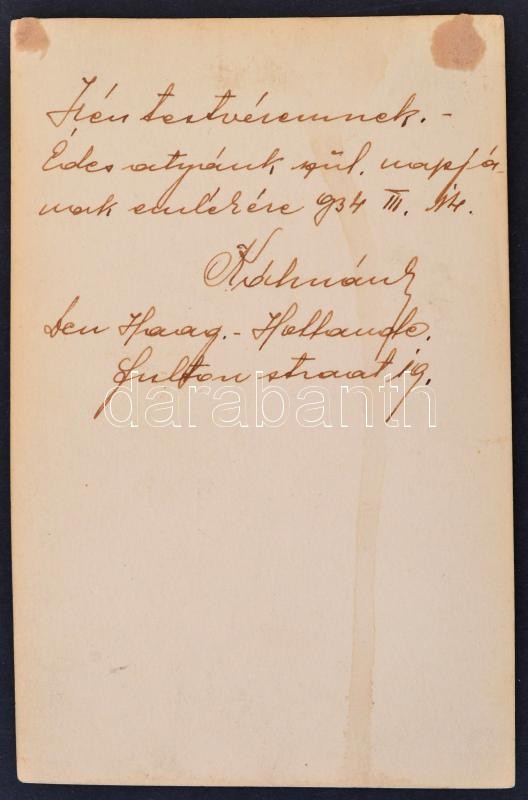 Irén testvéremnek. -
Édes atyánk szül. napjá-
nak emlékére 934 III. 14.
Kálmán
Den Haag. - Hollande.
Fulton straat 19.
darabanth